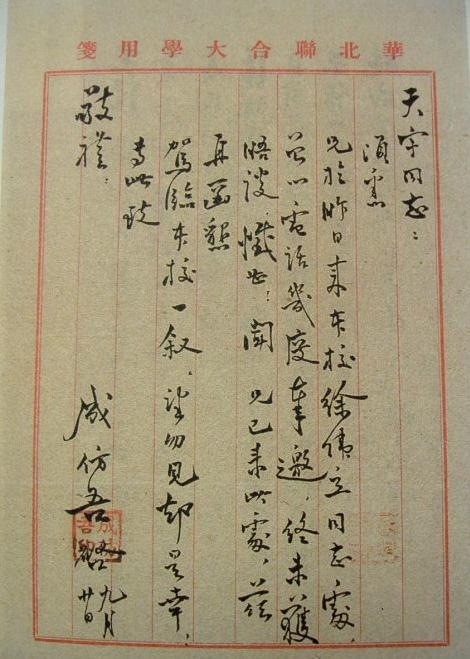 華北聯合大學用箋
天宇同志：
頃悉
兄於昨日來本校徐立同志處，
曾以電話幾度奉邀，終未獲
晤談，憾甚；聞 兄已來此處，茲
再函懇
駕臨本校一叙，望勿見却是幸，
专此致
敬禮！
成仿吾啓 九月廿日